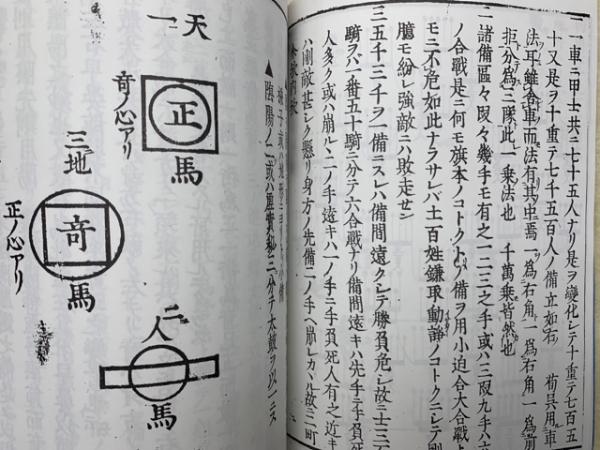 二一車ニ甲士共ニ七十五人ナリ是ヲ變化レテ十重テ七百五
十又是ヲ十重テ七千五百人ノ備立如右 荀呉用車
法耳雖舎車而法有其中焉一爲右角一爲右角一爲前
拒分爲三隊此一乗法也 千萬乗皆然也
二諸備區々段々幾手モ有之一二三之手或ハ三段九手ハ六
ノ合戰是ニ何モ旗本ノコトクトノ備ヲ用小迫合大合戰ト
モニ不危如此ナラサレバ土百姓鎌取動諍ノコトクニレテ剛
臆モ紛レ強敵ニハ敗走セン
三五千三千ヲ一備ニスレハ備間遠クレテ勝負危レ故ニ士三
騎ヲハ一番五十騎ニ分テ六合戰ナリ備間遠キハ先手ニ手負死
人多ク或ハ崩ルヽ二ノ手遠キハ一ノ手ニ手負死人有之近キ
ハ剛敵甚レク懸リ身方ノ先備二ノ手ヘ崩レカヽル故ニ二町
▲陰陽ノ二或ハ虛實
天
一
正
馬
竒ノ心アリ
三地
竒
馬
正ノ心アリ
二
人
馬